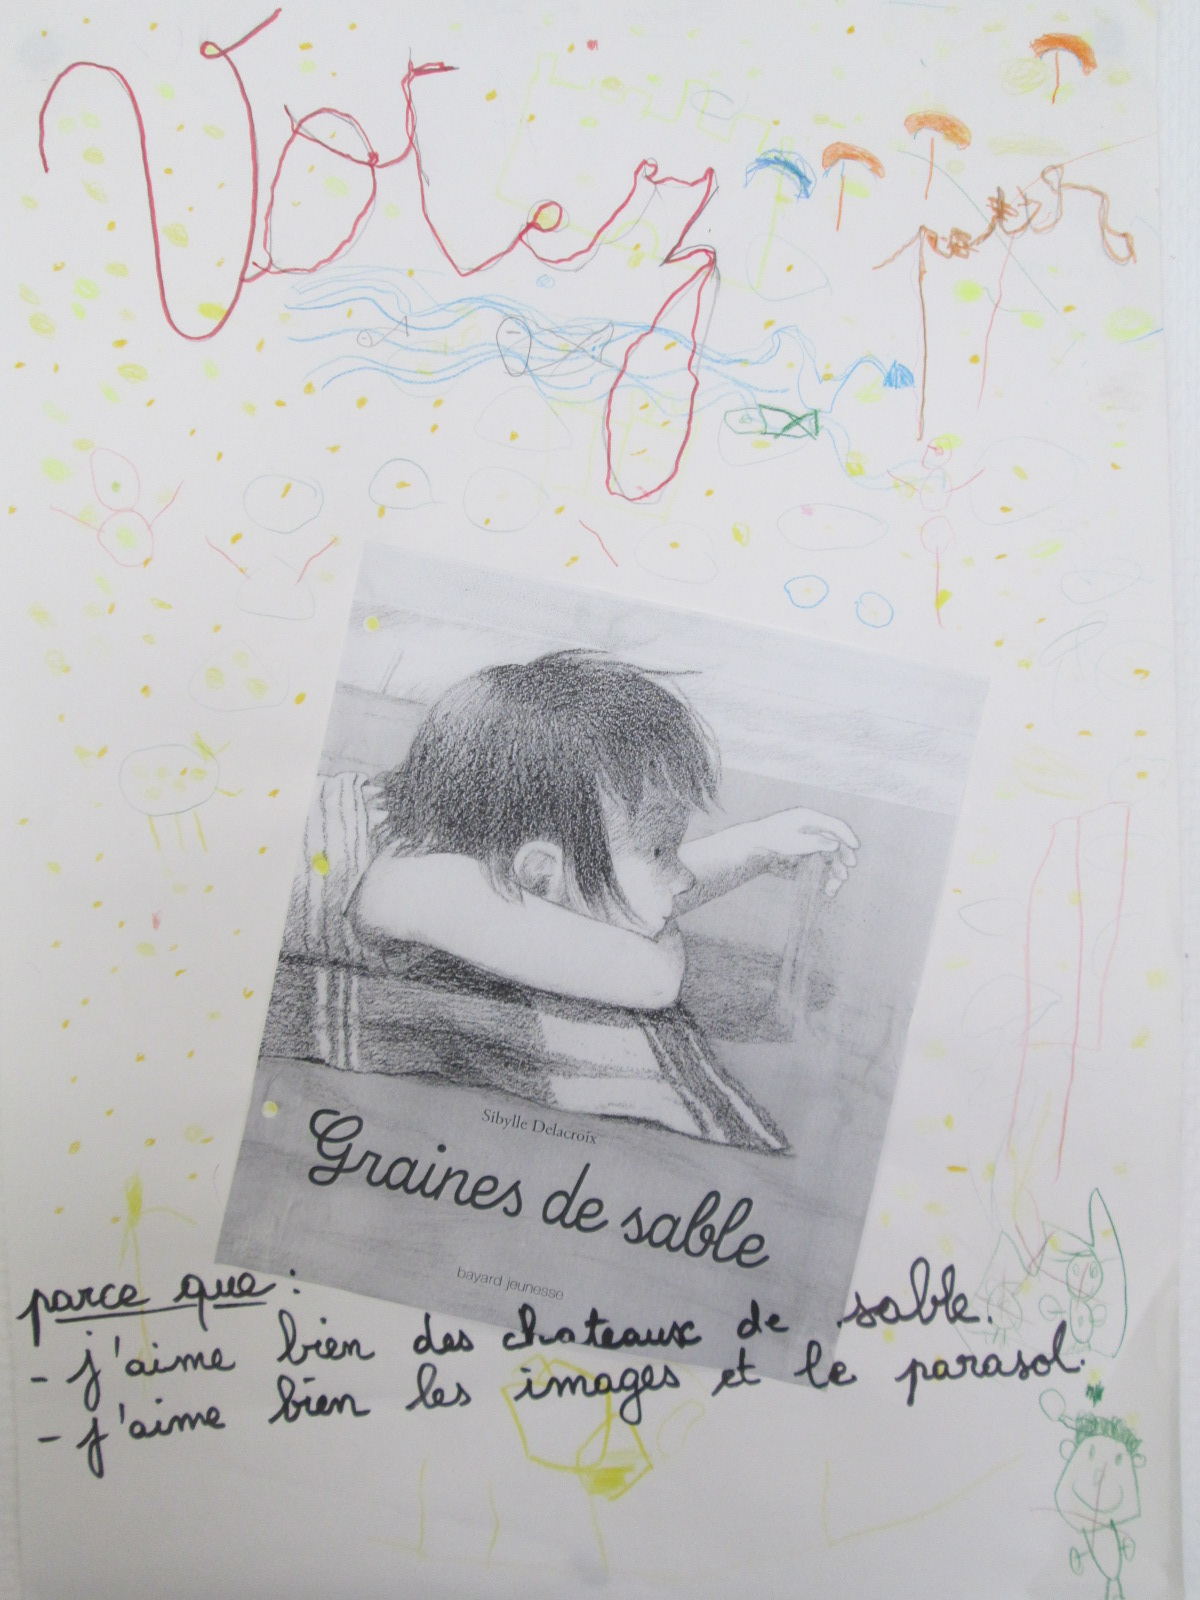 Votez
pour
Sibylle Delacroix
Graines de sable
bayard jeunesse
parce que :
- j'aime bien des chateaux de sable.
- j'aime bien les images et le parasol.